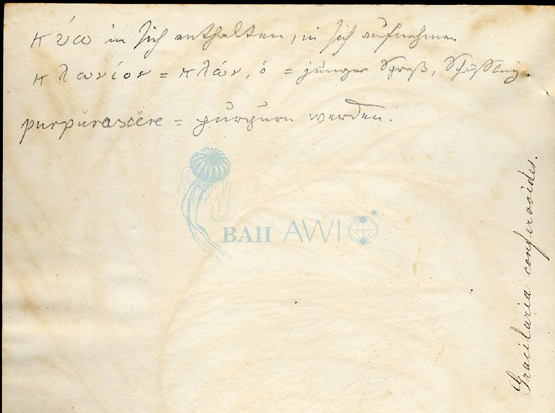 κύω in sich enthalten, in sich aufnehmen
κλωνίον = κλών, ὁ = junger Sproß, Schößling.
purpurascĕre = purpurn werden.
BAH AWI
Gracilaria confervoides.